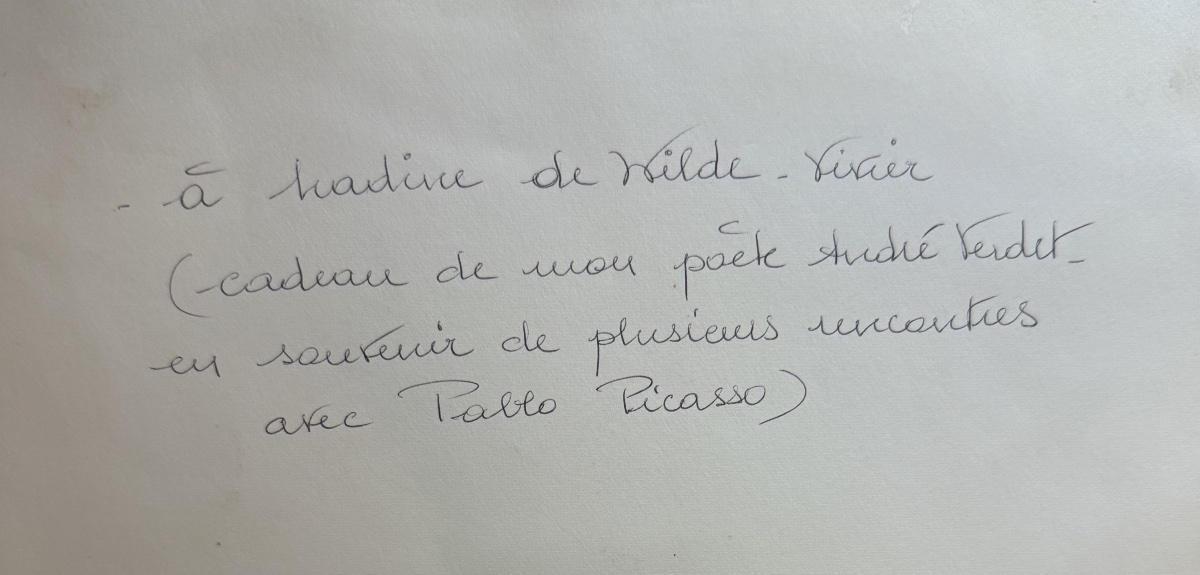 - à Nadine de Wilde - Vivier
(-cadeau de mon poète André Verdet -
en souvenir de plusieurs rencontres
avec Pablo Picasso)